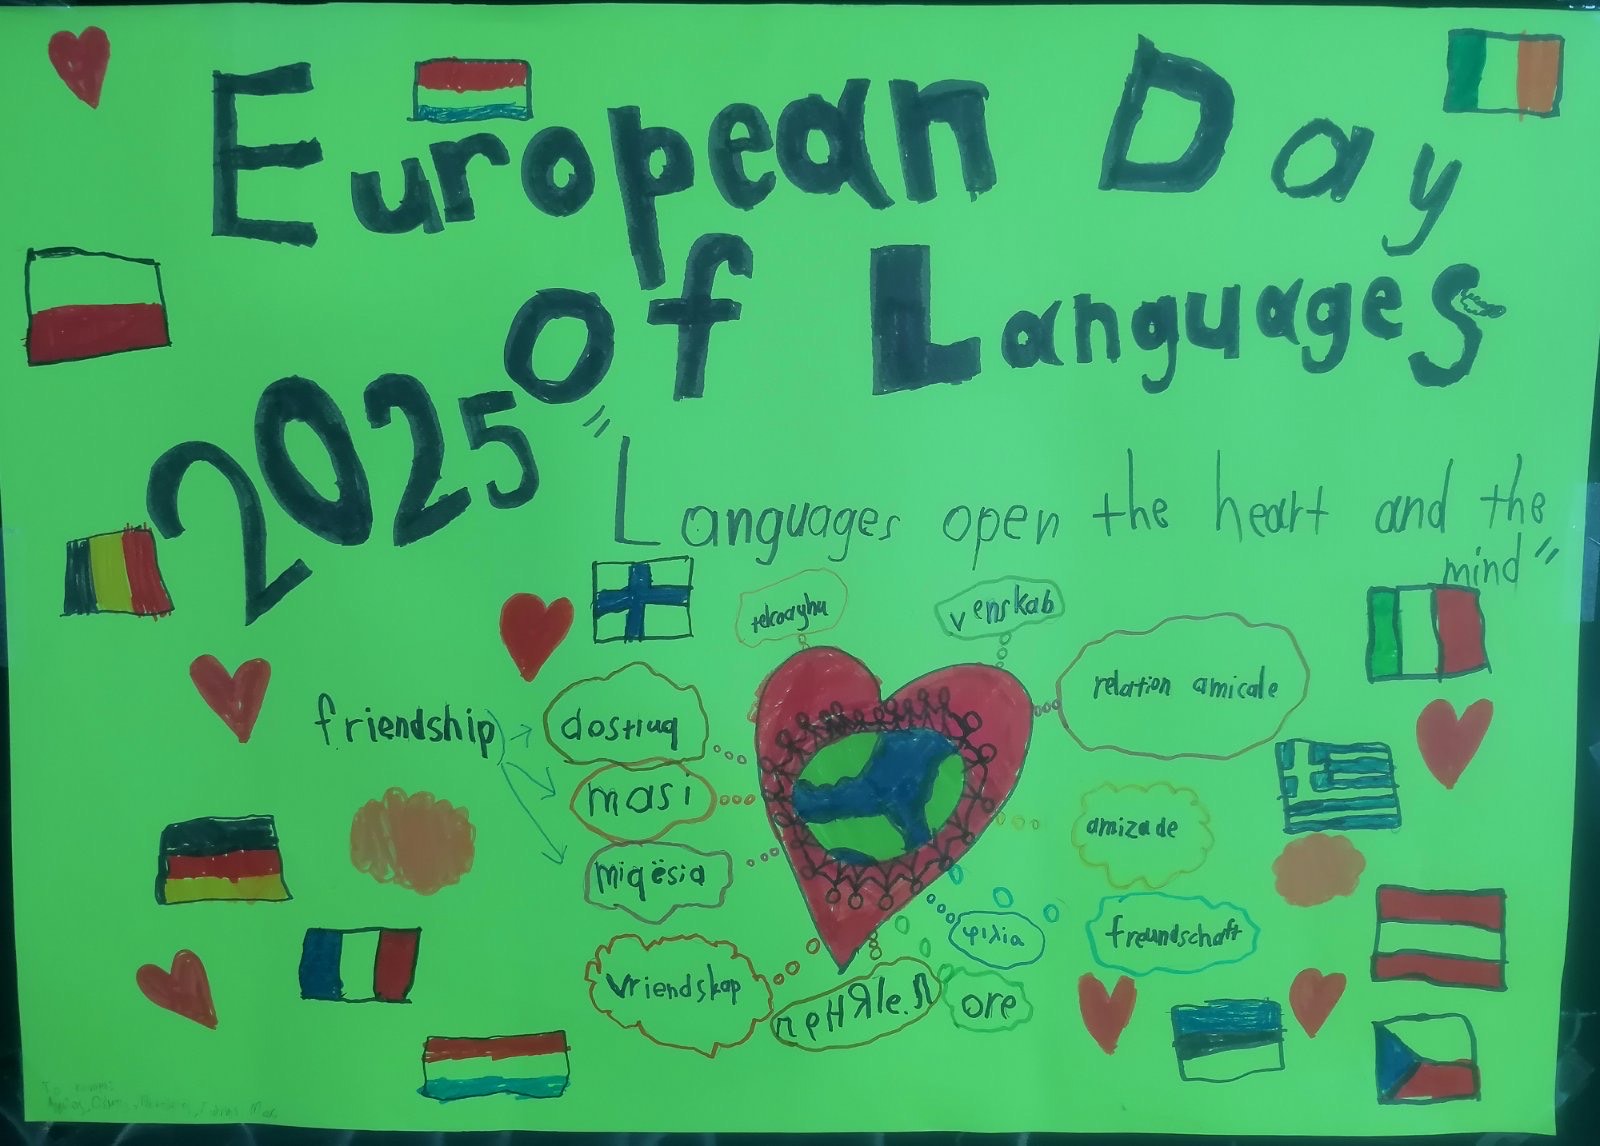 European Day
of Languages
2025
"Languages open the heart and the
mind"
venskab
relation amicale
friendship
dostluq
masi
miqësia
amizade
φιλία
freundschaft
vriendskap
ore